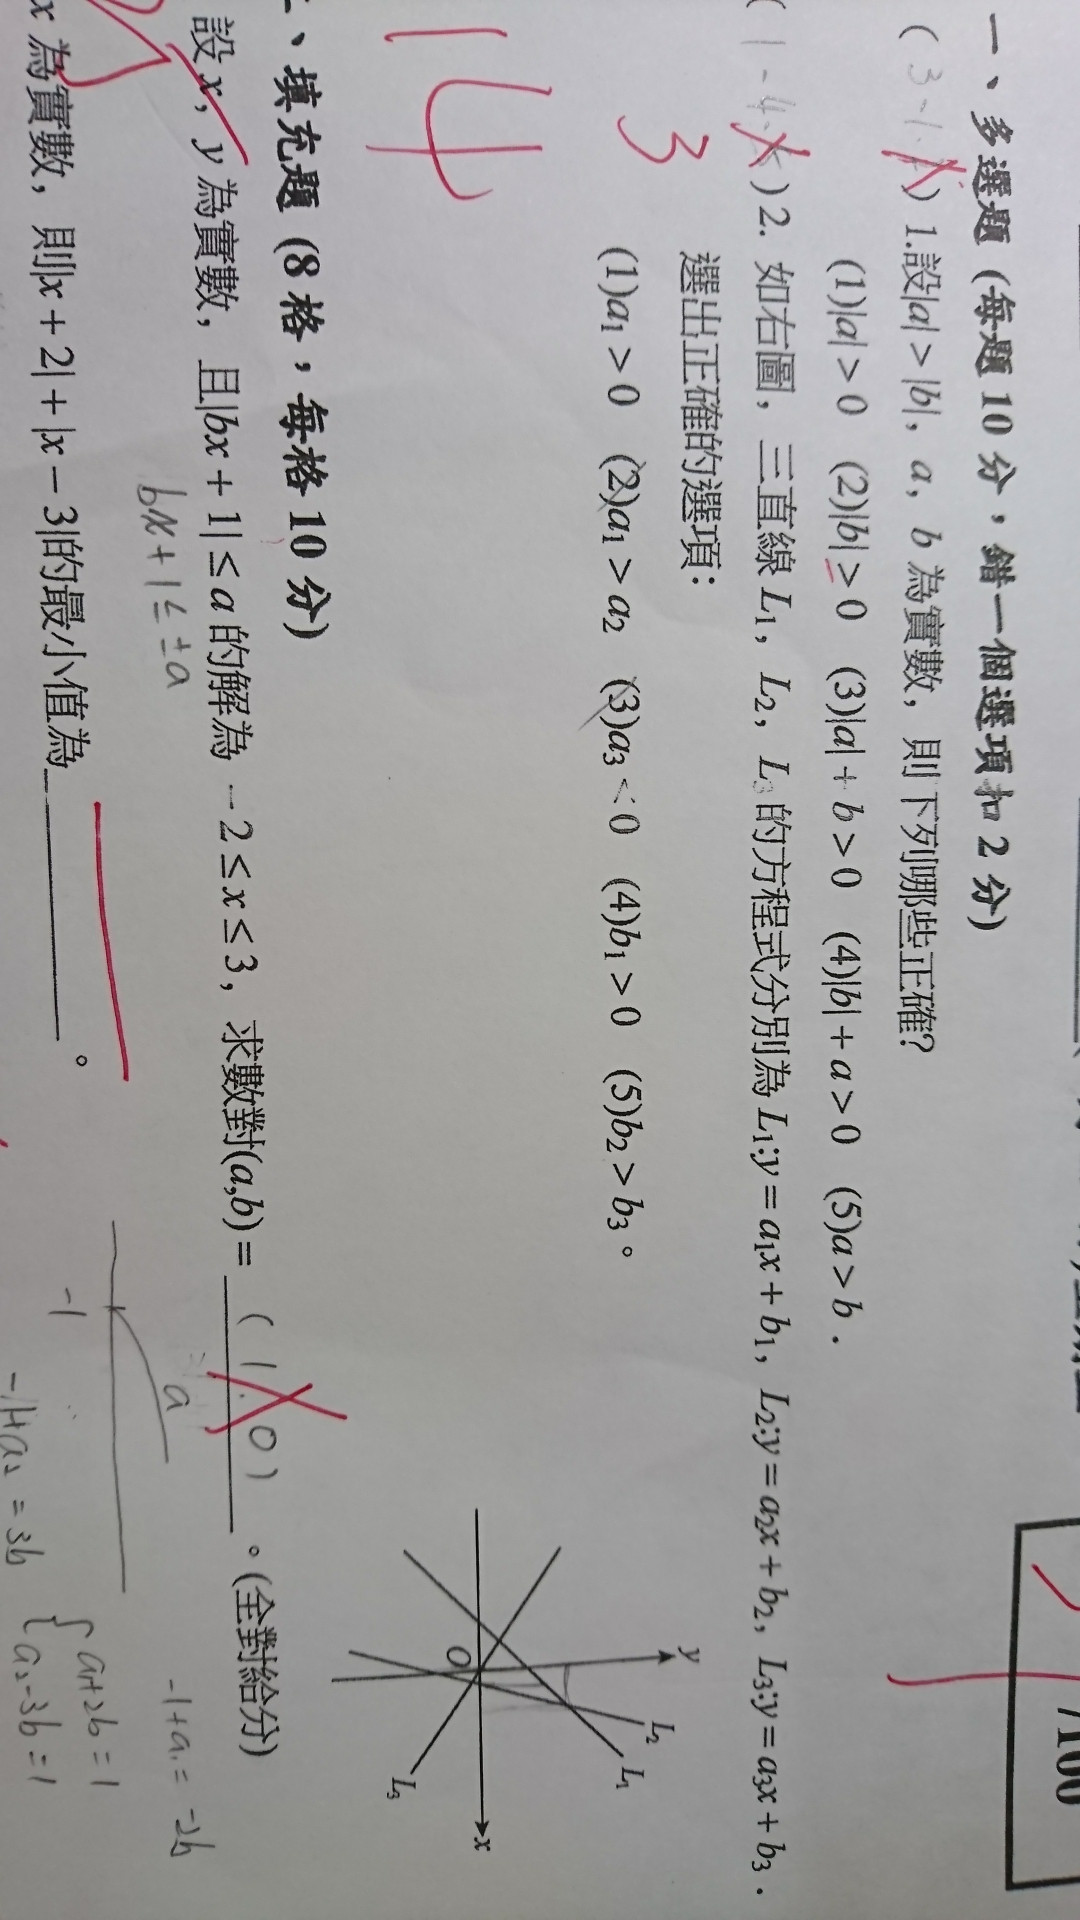 /100
一、多選題 (每題 10 分，錯一個選項扣 2 分)
( 3、1、 ) 1.設|a| > |b|，a，b 為實數，則下列哪些正確?
(1)|a| > 0 (2)|b| > 0 (3)|a| + b > 0 (4)|b| + a > 0 (5)a > b .
( 1、4、 ) 2. 如右圖，三直線 L₁，L₂，L₃ 的方程式分別為 L₁:y = a₁x + b₁，L₂:y = a₂x + b₂，L₃:y = a₃x + b₃ .
選出正確的選項：
3
(1)a₁ > 0 (2)a₁ > a₂ (3)a₃ < 0 (4)b₁ > 0 (5)b₂ > b₃。
y
L₂
L₁
O
x
L₃
14
、填充題 (8 格，每格 10 分)
設 x，y 為實數，且|bx + 1| ≤ a 的解為 －2 ≤ x ≤ 3，求數對(a,b) = (1、0) 。(全對給分)
bx + 1 ≤ ±a
a
-1
-1+a = -2b
-1+a = 3b
{ a+2b = 1
a-3b = 1
x 為實數，則|x + 2| + |x － 3|的最小值為 。